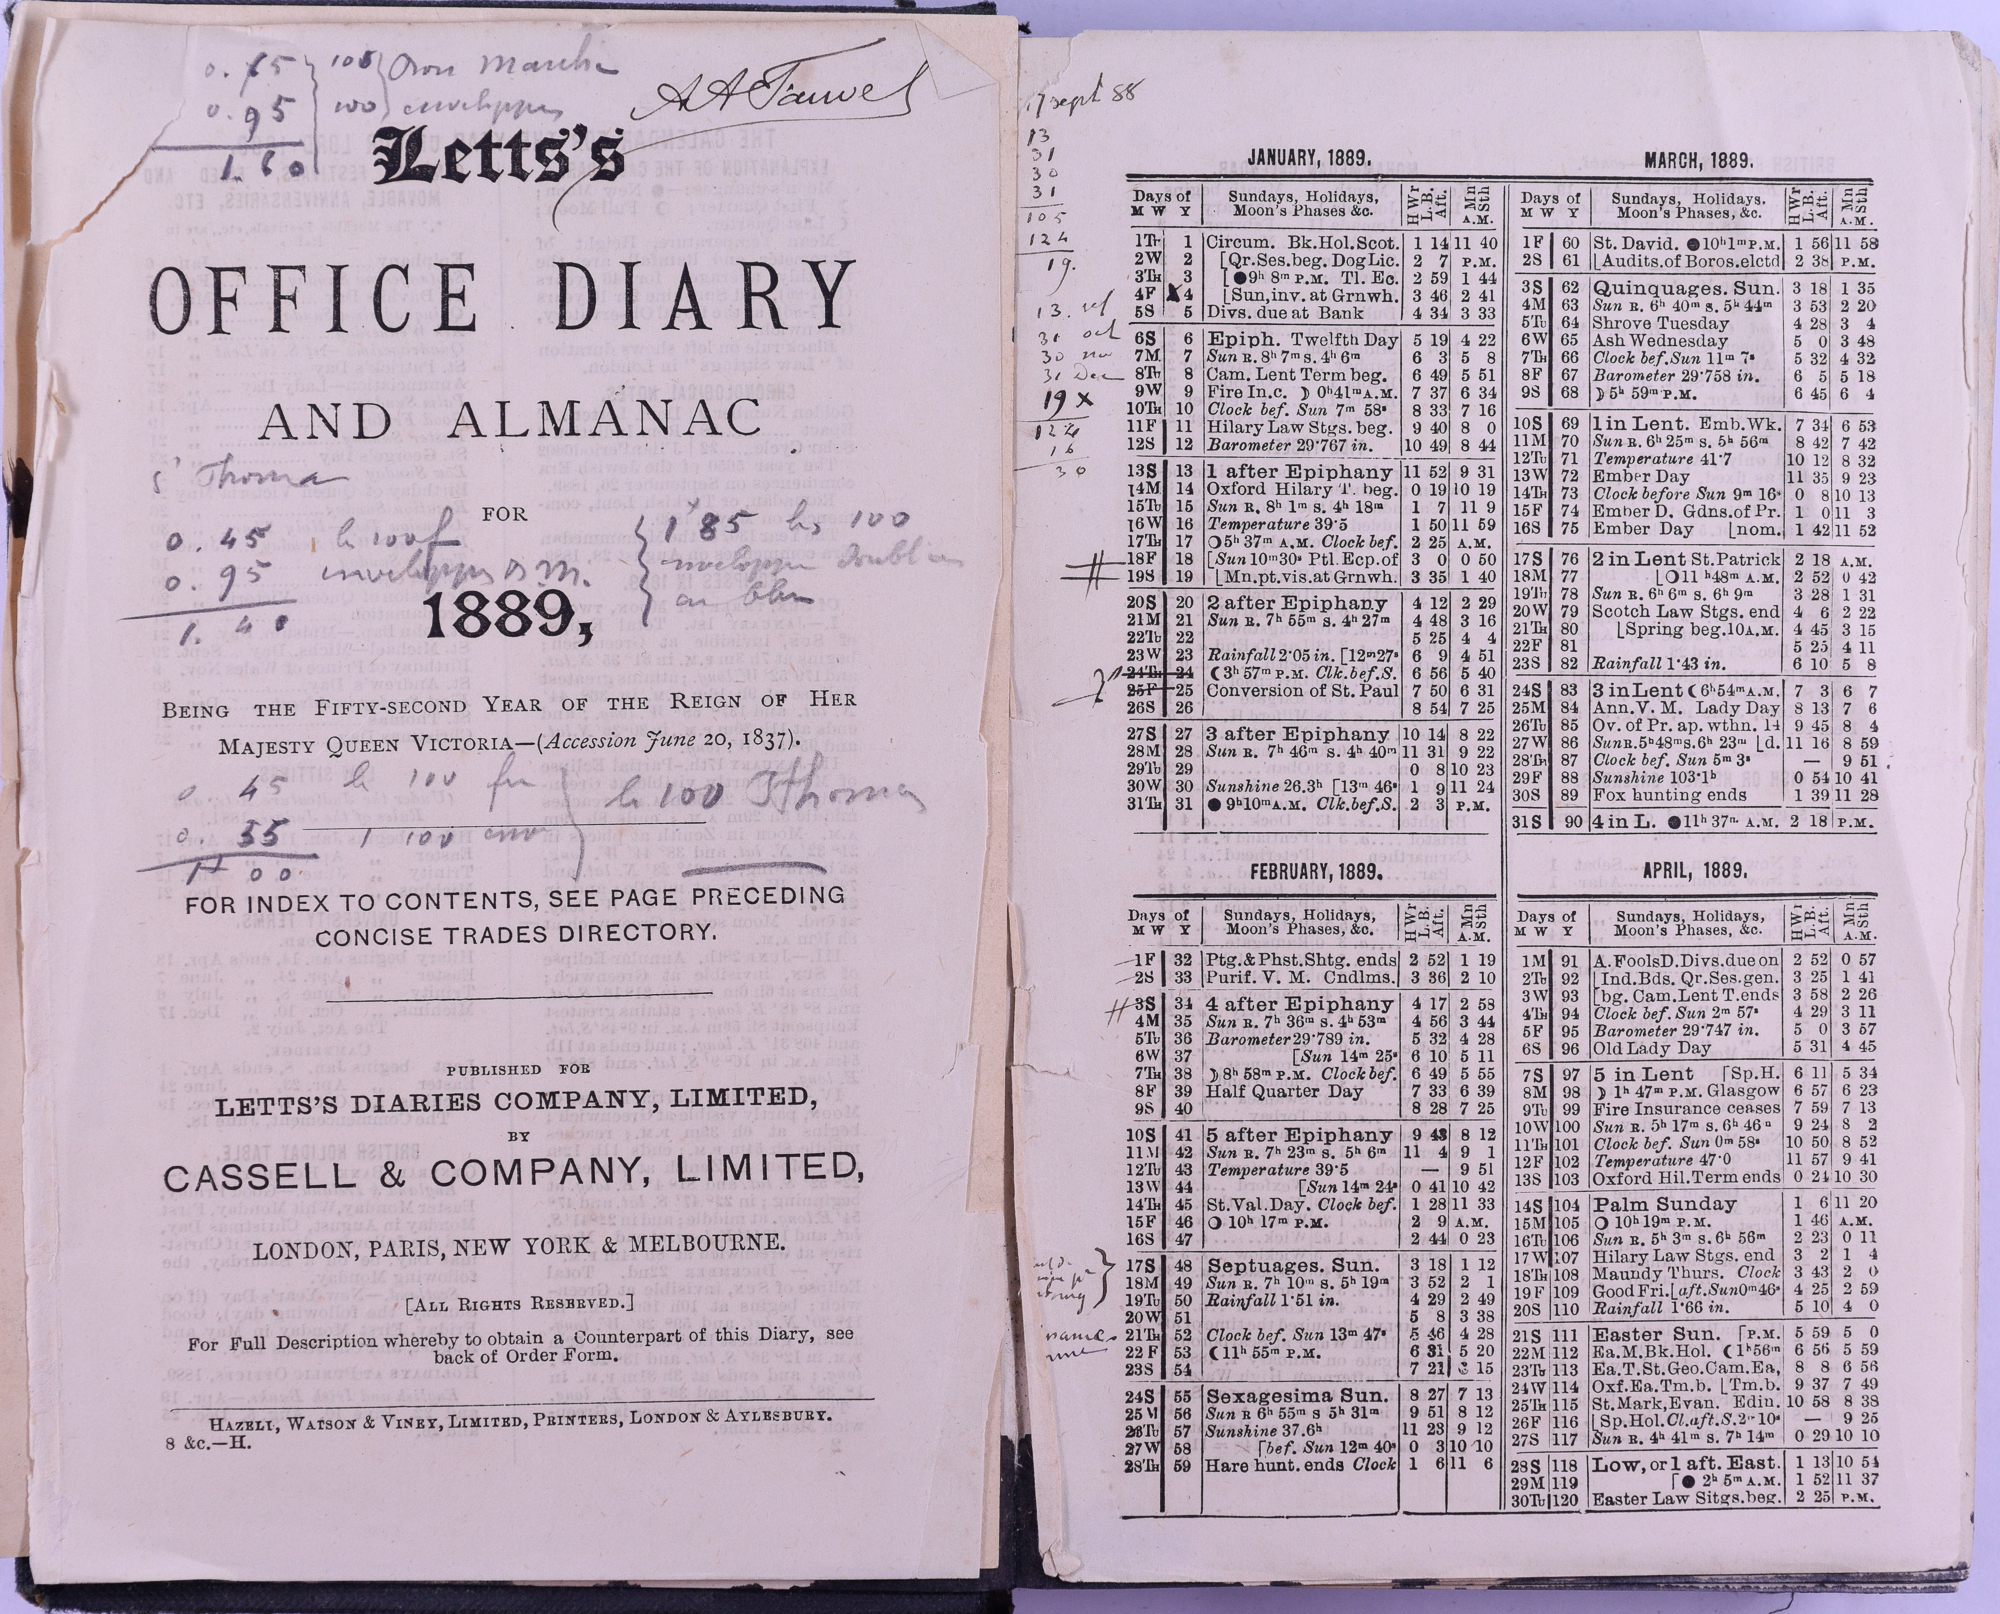 0.65 } 100 } Bon Marché
0.95 } 100 } enveloppes
1.60
A A Fauvel
Letts's
OFFICE DIARY
AND ALMANAC
St Thoma
FOR
0.45 le 100 f
0.95 enveloppes B.M.
1.40
1.85 les 100
enveloppes doublées
en bleu
1889,
BEING THE FIFTY-SECOND YEAR OF THE REIGN OF HER
MAJESTY QUEEN VICTORIA—(Accession June 20, 1837).
0.45 le 100 fu
0.55 1 100 env
1.00
le 100 St Thomas
FOR INDEX TO CONTENTS, SEE PAGE PRECEDING
CONCISE TRADES DIRECTORY.
PUBLISHED FOR
LETTS'S DIARIES COMPANY, LIMITED,
BY
CASSELL & COMPANY, LIMITED,
LONDON, PARIS, NEW YORK & MELBOURNE.
[ALL RIGHTS RESERVED.]
For Full Description whereby to obtain a Counterpart of this Diary, see
back of Order Form.
HAZELL, WATSON & VINEY, LIMITED, PRINTERS, LONDON & AYLESBURY.
8 &c.—H.
17 sept 88
13
31
30
31
105
124
19.
31 oct
30 nov
31 Dec
19 x
124
16
30
JANUARY, 1889.
Days of Sundays, Holidays, HWr L.B. Aft. Mn Sth
M W Y Moon's Phases &c. A.M.
1Tu 1 Circum. Bk.Hol.Scot. 1 14 11 40
2W 2 [Qr.Ses.beg. Dog Lic. 2 7 P.M.
3Th 3 [●9h 8m P.M. Tl. Ec. 2 59 1 44
4F 4 [Sun,inv. at Grnwh. 3 46 2 41
5S 5 Divs. due at Bank 4 34 3 33
6S 6 Epiph. Twelfth Day 5 19 4 22
7M 7 Sun R. 8h 7m s. 4h 6m 6 3 5 8
8Tu 8 Cam. Lent Term beg. 6 49 5 51
9W 9 Fire In.c. ☽ 0h41m A.M. 7 37 6 34
10Th 10 Clock bef. Sun 7m 58s 8 33 7 16
11F 11 Hilary Law Stgs. beg. 9 40 8 0
12S 12 Barometer 29·767 in. 10 49 8 44
13S 13 1 after Epiphany 11 52 9 31
14M 14 Oxford Hilary T. beg. 0 19 10 19
15Tu 15 Sun R. 8h 1m s. 4h 18m 1 7 11 9
16W 16 Temperature 39·5 1 50 11 59
17Th 17 ○5h 37m A.M. Clock bef. 2 25 A.M.
18F 18 [Sun 10m30s Ptl. Ecp. of 3 0 0 50
19S 19 [Mn.pt.vis. at Grnwh. 3 35 1 40
20S 20 2 after Epiphany 4 12 2 29
21M 21 Sun R. 7h 55m s. 4h 27m 4 48 3 16
22Tu 22 5 25 4 4
23W 23 Rainfall 2·05 in. [12m27s 6 9 4 51
24Th 24 ☾3h 57m P.M. Clk.bef.S. 6 56 5 40
25F 25 Conversion of St. Paul 7 50 6 31
26S 26 8 54 7 25
27S 27 3 after Epiphany 10 14 8 22
28M 28 Sun R. 7h 46m s. 4h 40m 11 31 9 22
29Tu 29 0 8 10 23
30W 30 Sunshine 26.3h [13m 46s 1 9 11 24
31Th 31 ●9h10m A.M. Clk.bef.S. 2 3 P.M.
MARCH, 1889.
Days of Sundays, Holidays, HWr L.B. Aft. Mn Sth
M W Y Moon's Phases, &c. A.M.
1F 60 St. David. ●10h1m P.M. 1 56 11 58
2S 61 [Audits.of Boros.elctd 2 38 P.M.
3S 62 Quinquages. Sun. 3 18 1 35
4M 63 Sun R. 6h 40m s. 5h 44m 3 53 2 20
5Tu 64 Shrove Tuesday 4 28 3 4
6W 65 Ash Wednesday 5 0 3 48
7Th 66 Clock bef.Sun 11m 7s 5 32 4 32
8F 67 Barometer 29·758 in. 6 5 5 18
9S 68 ☽5h 59m P.M. 6 45 6 4
10S 69 1 in Lent. Emb.Wk. 7 34 6 53
11M 70 Sun R. 6h 25m s. 5h 56m 8 42 7 42
12Tu 71 Temperature 41·7 10 12 8 32
13W 72 Ember Day 11 35 9 23
14Th 73 Clock before Sun 9m 16s 0 8 10 13
15F 74 Ember D. Gdns.of Pr. 1 0 11 3
16S 75 Ember Day [nom. 1 42 11 52
17S 76 2 in Lent St.Patrick 2 18 A.M.
18M 77 [○11h48m A.M. 2 52 0 42
19Tu 78 Sun R. 6h 6m s. 6h 9m 3 28 1 31
20W 79 Scotch Law Stgs. end 4 6 2 22
21Th 80 [Spring beg.10A.M. 4 45 3 15
22F 81 5 25 4 11
23S 82 Rainfall 1·43 in. 6 10 5 8
24S 83 3 in Lent ☾6h54m A.M. 7 3 6 7
25M 84 Ann.V. M. Lady Day 8 13 7 6
26Tu 85 Ov. of Pr. ap. wthn. 14 9 45 8 4
27W 86 Sun R.5h48m s.6h 23m [d. 11 16 8 59
28Th 87 Clock bef. Sun 5m 3s — 9 51
29F 88 Sunshine 103·1h 0 54 10 41
30S 89 Fox hunting ends 1 39 11 28
31S 90 4 in L. ●11h 37m A.M. 2 18 P.M.
FEBRUARY, 1889.
Days of Sundays, Holidays, HWr L.B. Aft. Mn Sth
M W Y Moon's Phases, &c. A.M.
1F 32 Ptg.&Phst.Shtg. ends 2 52 1 19
2S 33 Purif. V. M. Cndlms. 3 36 2 10
3S 34 4 after Epiphany 4 17 2 58
4M 35 Sun R. 7h 36m s. 4h 53m 4 56 3 44
5Tu 36 Barometer 29·789 in. 5 32 4 28
6W 37 [Sun 14m 25s 6 10 5 11
7Th 38 ☽8h 58m P.M. Clock bef. 6 49 5 55
8F 39 Half Quarter Day 7 33 6 39
9S 40 8 28 7 25
10S 41 5 after Epiphany 9 43 8 12
11M 42 Sun R. 7h 23m s. 5h 6m 11 4 9 1
12Tu 43 Temperature 39·5 — 9 51
13W 44 [Sun 14m 24s 0 41 10 42
14Th 45 St.Val.Day. Clock bef. 1 28 11 33
15F 46 ○ 10h 17m P.M. 2 9 A.M.
16S 47 2 44 0 23
17S 48 Septuages. Sun. 3 18 1 12
18M 49 Sun R. 7h 10m s. 5h 19m 3 52 2 1
19Tu 50 Rainfall 1·51 in. 4 29 2 49
20W 51 5 8 3 38
21Th 52 Clock bef. Sun 13m 47s 5 46 4 28
22F 53 ☾11h 55m P.M. 6 31 5 20
23S 54 7 21 6 15
24S 55 Sexagesima Sun. 8 27 7 13
25M 56 Sun R 6h 55m s 5h 31m 9 51 8 12
26Tu 57 Sunshine 37.6h 11 23 9 12
27W 58 [bef. Sun 12m 40s 0 3 10 10
28Th 59 Hare hunt. ends Clock 1 6 11 6
APRIL, 1889.
Days of Sundays, Holidays, HWr L.B. Aft. Mn Sth
M W Y Moon's Phases, &c. A.M.
1M 91 A.FoolsD.Divs.due on 2 52 0 57
2Tu 92 [Ind.Bds. Qr.Ses.gen. 3 25 1 41
3W 93 [bg. Cam.Lent T.ends 3 58 2 26
4Th 94 Clock bef. Sun 2m 57s 4 29 3 11
5F 95 Barometer 29·747 in. 5 0 3 57
6S 96 Old Lady Day 5 31 4 45
7S 97 5 in Lent [Sp.H. 6 11 5 34
8M 98 ☽ 1h 47m P.M. Glasgow 6 57 6 23
9Tu 99 Fire Insurance ceases 7 59 7 13
10W 100 Sun R. 5h 17m s. 6h 46m 9 24 8 2
11Th 101 Clock bef. Sun 0m 58s 10 50 8 52
12F 102 Temperature 47·0 11 57 9 41
13S 103 Oxford Hil.Term ends 0 24 10 30
14S 104 Palm Sunday 1 6 11 20
15M 105 ○ 10h 19m P.M. 1 46 A.M.
16Tu 106 Sun R. 5h 3m s. 6h 56m 2 23 0 11
17W 107 Hilary Law Stgs. end 3 2 1 4
18Th 108 Maundy Thurs. Clock 3 43 2 0
19F 109 Good Fri.[aft.Sun0m46s 4 25 2 59
20S 110 Rainfall 1·66 in. 5 10 4 0
21S 111 Easter Sun. [P.M. 5 59 5 0
22M 112 Ea.M.Bk.Hol. ☾1h56m 6 56 5 59
23Tu 113 Ea.T.St.Geo.Cam.Ea, 8 8 6 56
24W 114 Oxf.Ea.Tm.b. [Tm.b. 9 37 7 49
25Th 115 St.Mark,Evan. Edin. 10 58 8 38
26F 116 [Sp.Hol.Cl.aft.S.2m10s — 9 25
27S 117 Sun R. 4h 41m s. 7h 14m 0 29 10 10
28S 118 Low, or 1 aft. East. 1 13 10 54
29M 119 [● 2h 5m A.M. 1 52 11 37
30Tu 120 Easter Law Sitgs.beg. 2 25 P.M.